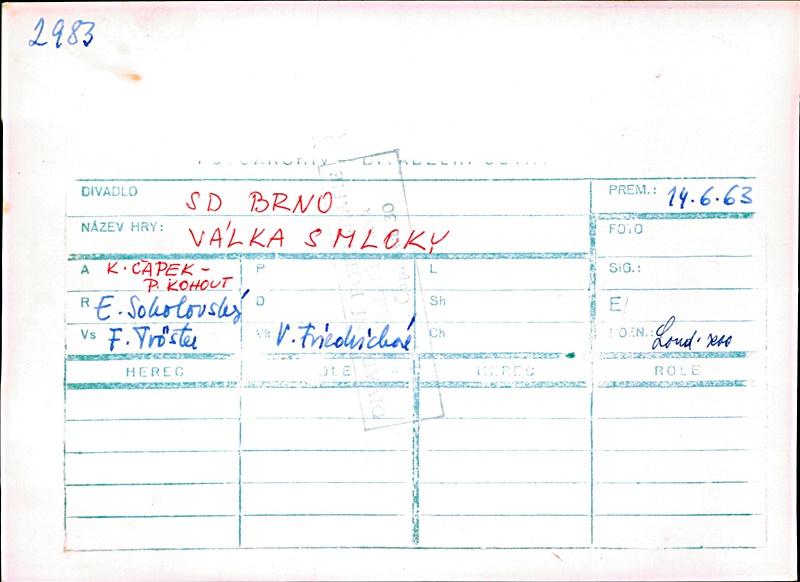 2983
DIVADLO SD BRNO PREM.: 14.6.63
NÁZEV HRY: VÁLKA S MLOKY FOTO
A K. ČAPEK - P. KOHOUT P L SIG.:
R E. Sokolovský D Sh E/
Vs F. Tröster Vk V. Friedrichová Ch POZN.:
HEREC ROLE HEREC ROLE